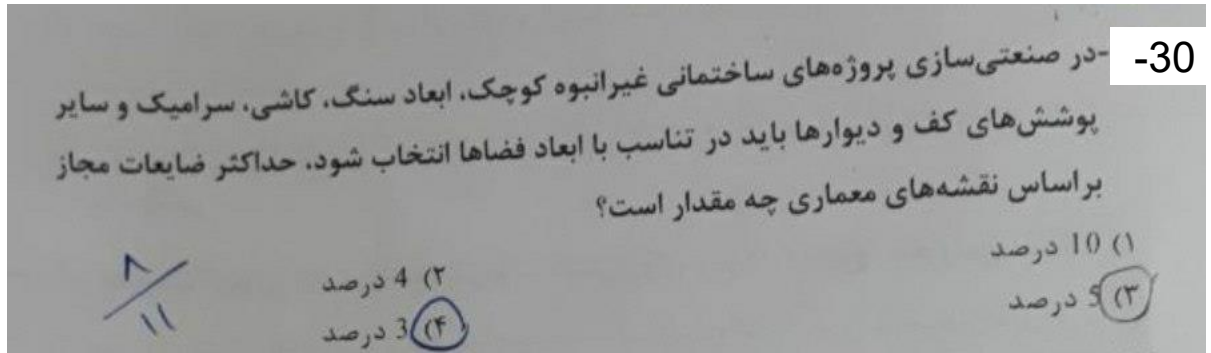 -30
-در صنعتی‌سازی پروژه‌های ساختمانی غیرانبوه کوچک، ابعاد سنگ، کاشی، سرامیک و سایر
پوشش‌های کف و دیوارها باید در تناسب با ابعاد فضاها انتخاب شود. حداکثر ضایعات مجاز
براساس نقشه‌های معماری چه مقدار است؟
۱) 10 درصد
۲) 4 درصد
۳) 5 درصد
۴) 3 درصد
۸/۱۱